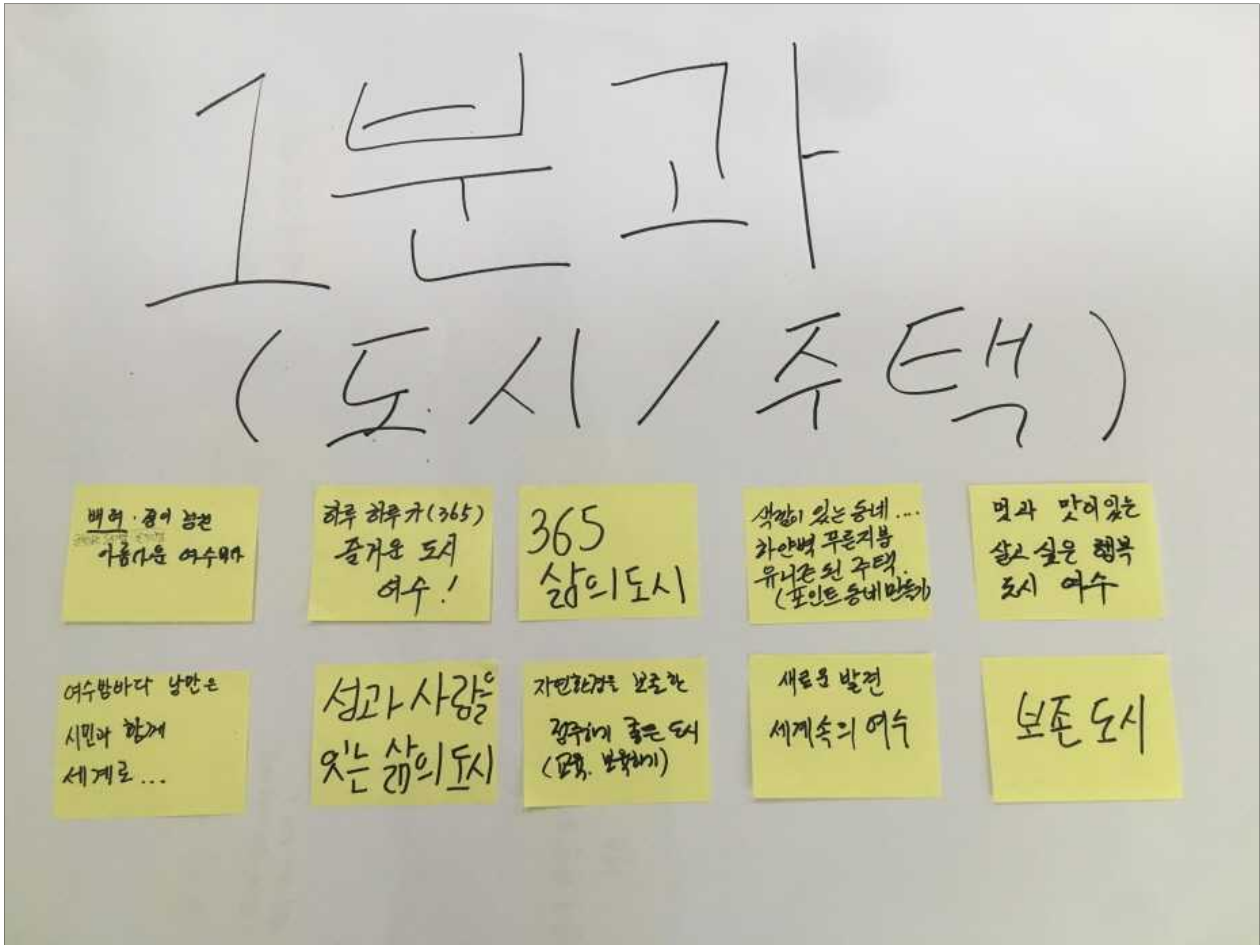 1분과
(도시/주택)
배려
아름다운 여수
하루 하루가(365)
즐거운 도시
여수!
365
삶의도시
색깔이 있는 동네...
하얀벽 푸른지붕
유니존 된 주택.
(포인트동네만들기)
멋과 맛이있는
살고 싶은 행복
도시 여수
여수밤바다 낭만은
시민과 함께
세계로...
섬과 사람을
잇는 삶의 도시
자연환경을 보존한
정주하기 좋은 도시
(교육. 보육하기)
새로운 발견
세계속의 여수
보존도시